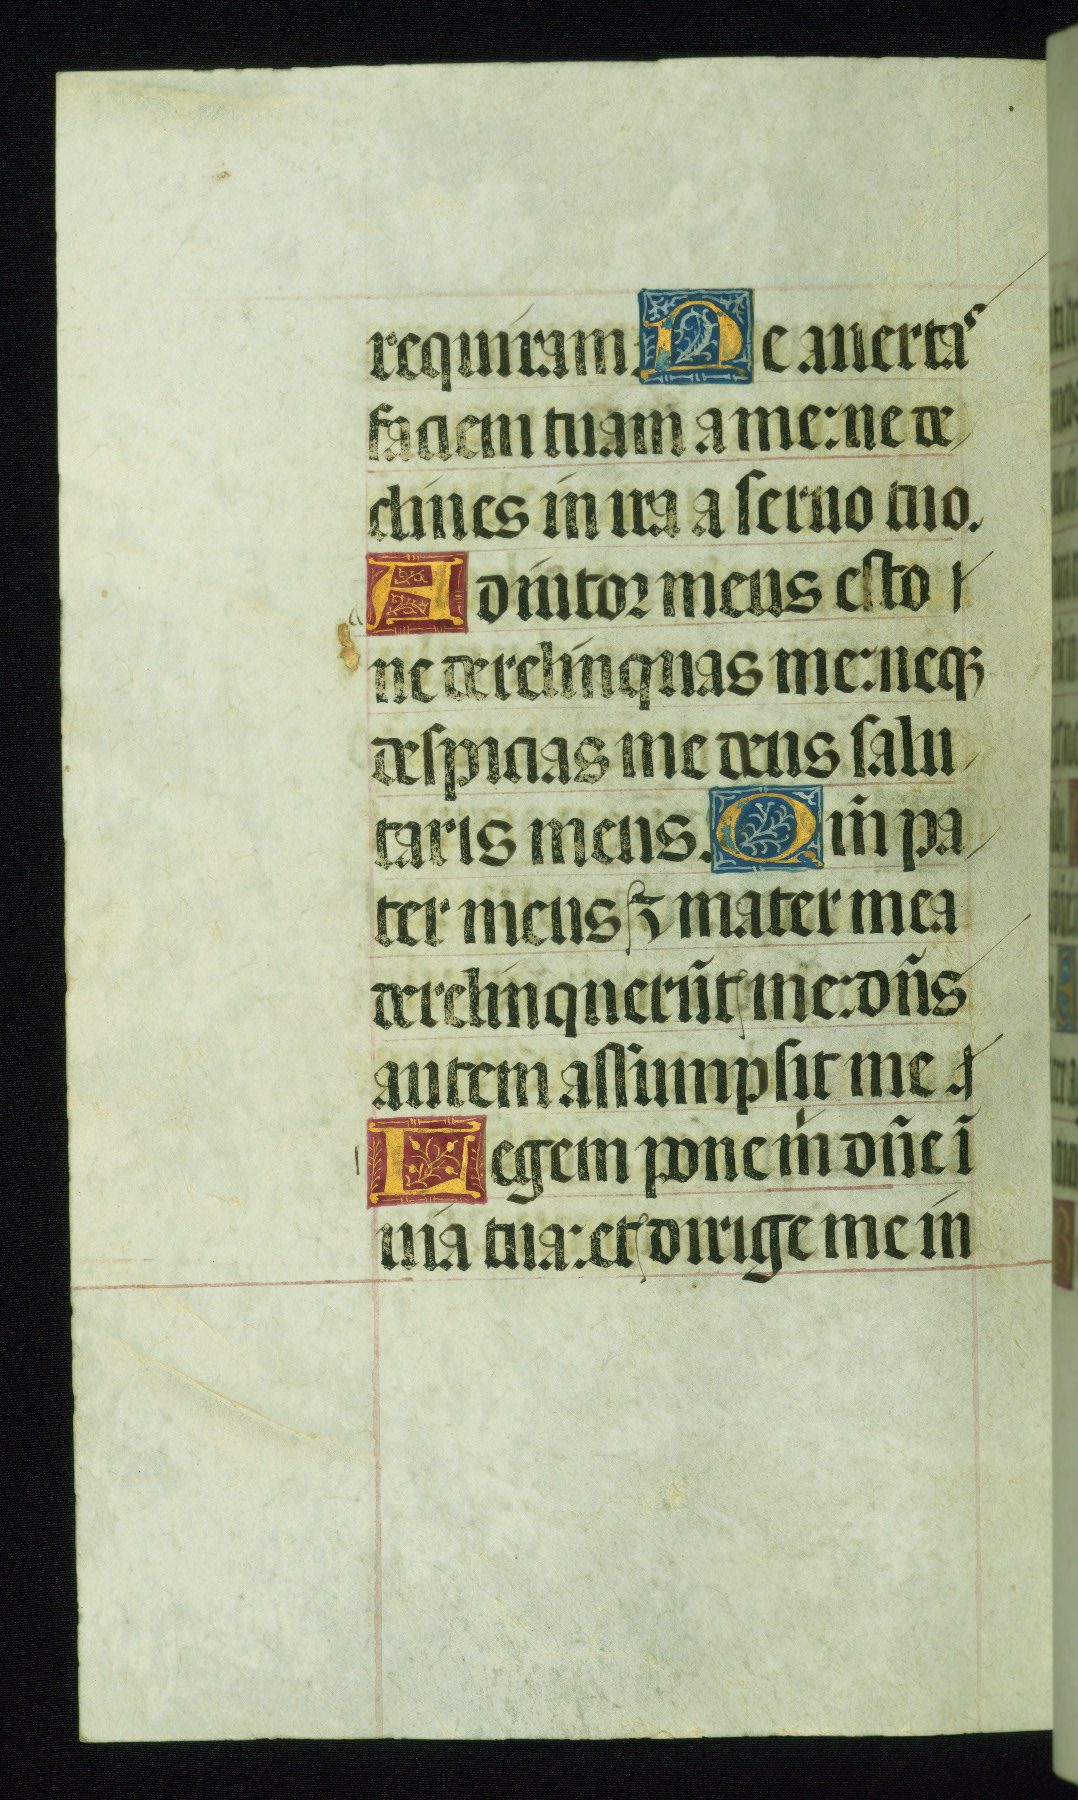 requiram. Ne auertas
faciem tuam a me: ne de
clines in ira a seruo tuo.
Adiutor meus esto
ne derelinquas me: neqꝫ
despicias me deus salu
taris meus. Qm̄ pa
ter meus ⁊ mater mea
derelinquerūt me: dn̄s
autem assumpsit me
Legem pone m̄ dn̄e ī
uia tua: et dirige me in